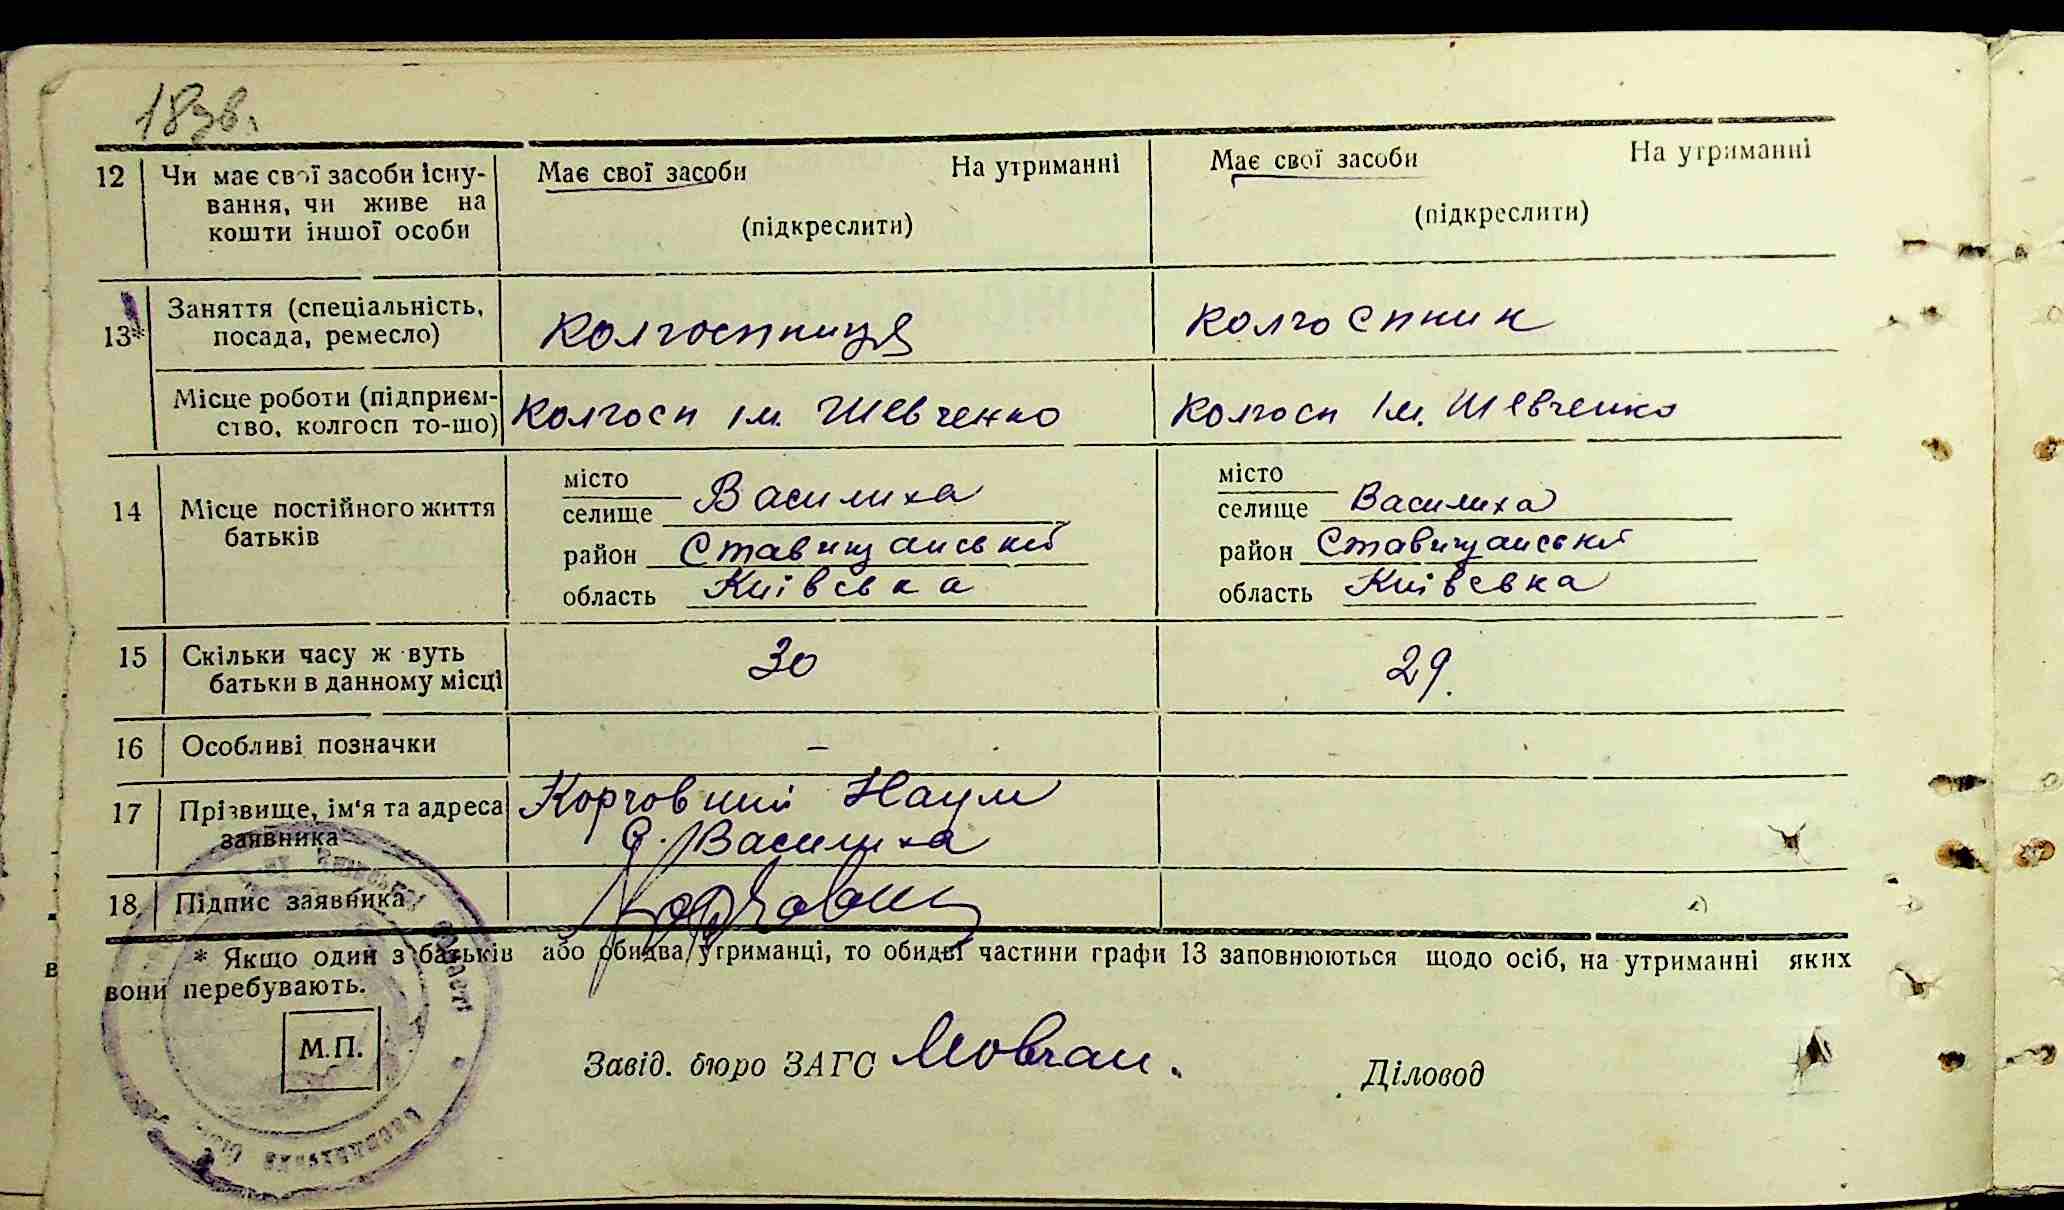 183в.
12 Чи має свої засоби існу- Має свої засоби На утриманні Має свої засоби На утриманні
вання, чи живе на (підкреслити) (підкреслити)
кошти іншої особи
13* Заняття (спеціальність, колгоспниця колгоспник
посада, ремесло)
Місце роботи (підприєм- колгосп ім. Шевченко колгосп ім. Шевченко
ство, колгосп то-шо)
14 Місце постійного життя батьків
місто
селище Василиха
район Ставищанський
область Київська
місто
селище Василиха
район Ставищанський
область Київська
15 Скільки часу ж вуть 30 29.
батьки в данному місці
16 Особливі позначки –
17 Прізвище, ім'я та адреса Корчовний Наум
заявника с. Василиха
18 Підпис заявника
* Якщо один з батьків або обидва утриманці, то обидві частини графи 13 заповнюються щодо осіб, на утриманні яких
вони перебувають.
М.П.
Завід. бюро ЗАГС Мовчан. Діловод